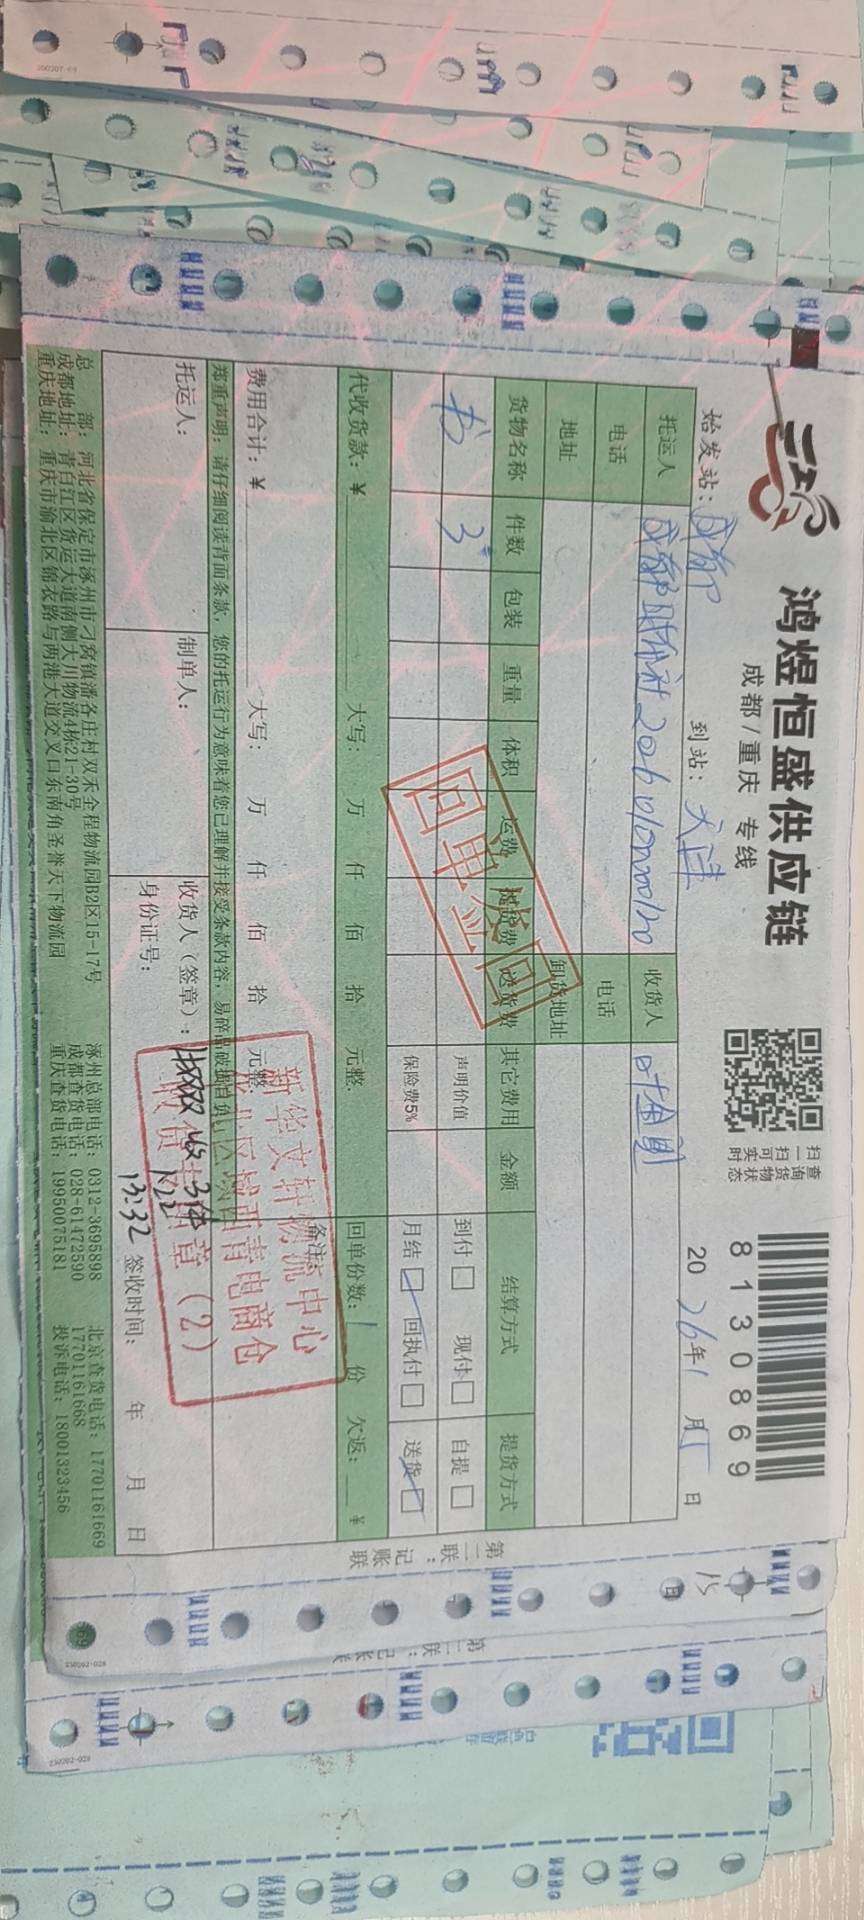 鸿煜恒盛供应链
成都/重庆 专线
扫一扫可实时
查询货物状态
8130869
始发站：成都
到站：天津
2026年1月15日
托运人
收货人 叶金
电话
电话
地址
卸货地址
货物名称 件数 包装 重量 体积 运费 送货费 其它费用 金额 结算方式 提货方式
书 3
声明价值
到付□ 现付□
自提□
保险费5%
月结□ 回执付□
送货□
回单发回
代收货款：¥ 大写： 万 仟 佰 拾 元整.
回单份数：1份 欠返： ¥
费用合计：¥ 大写： 万 仟 佰 拾 元整.
备注：
郑重声明：请仔细阅读背面条款，您的托运行为意味着您已理解并接受条款内容，易碎品破损自负
托运人：
制单人：
收货人（签章）：
收3件
1.22
13:32
身份证号：
签收时间： 年 月 日
新华文轩物流中心
西青电商仓
收货专用章（2）
总 部：河北省保定市涿州市刁窝镇潘各庄村双禾全程物流园B2区15-17号
成都地址：青白江区货运大道南侧大川物流4栋21-30号
重庆地址：重庆市渝北区锦衣路与两港大道交叉口东南角圣誉天下物流园
涿州总部电话：0312-3695898
成都查货电话：028-61472590
重庆查货电话：19950075181
北京查货电话：17701161669
17701161668
投诉电话：18001323456
第二联：记账联
第二联：记账联
230202-028
230202-028